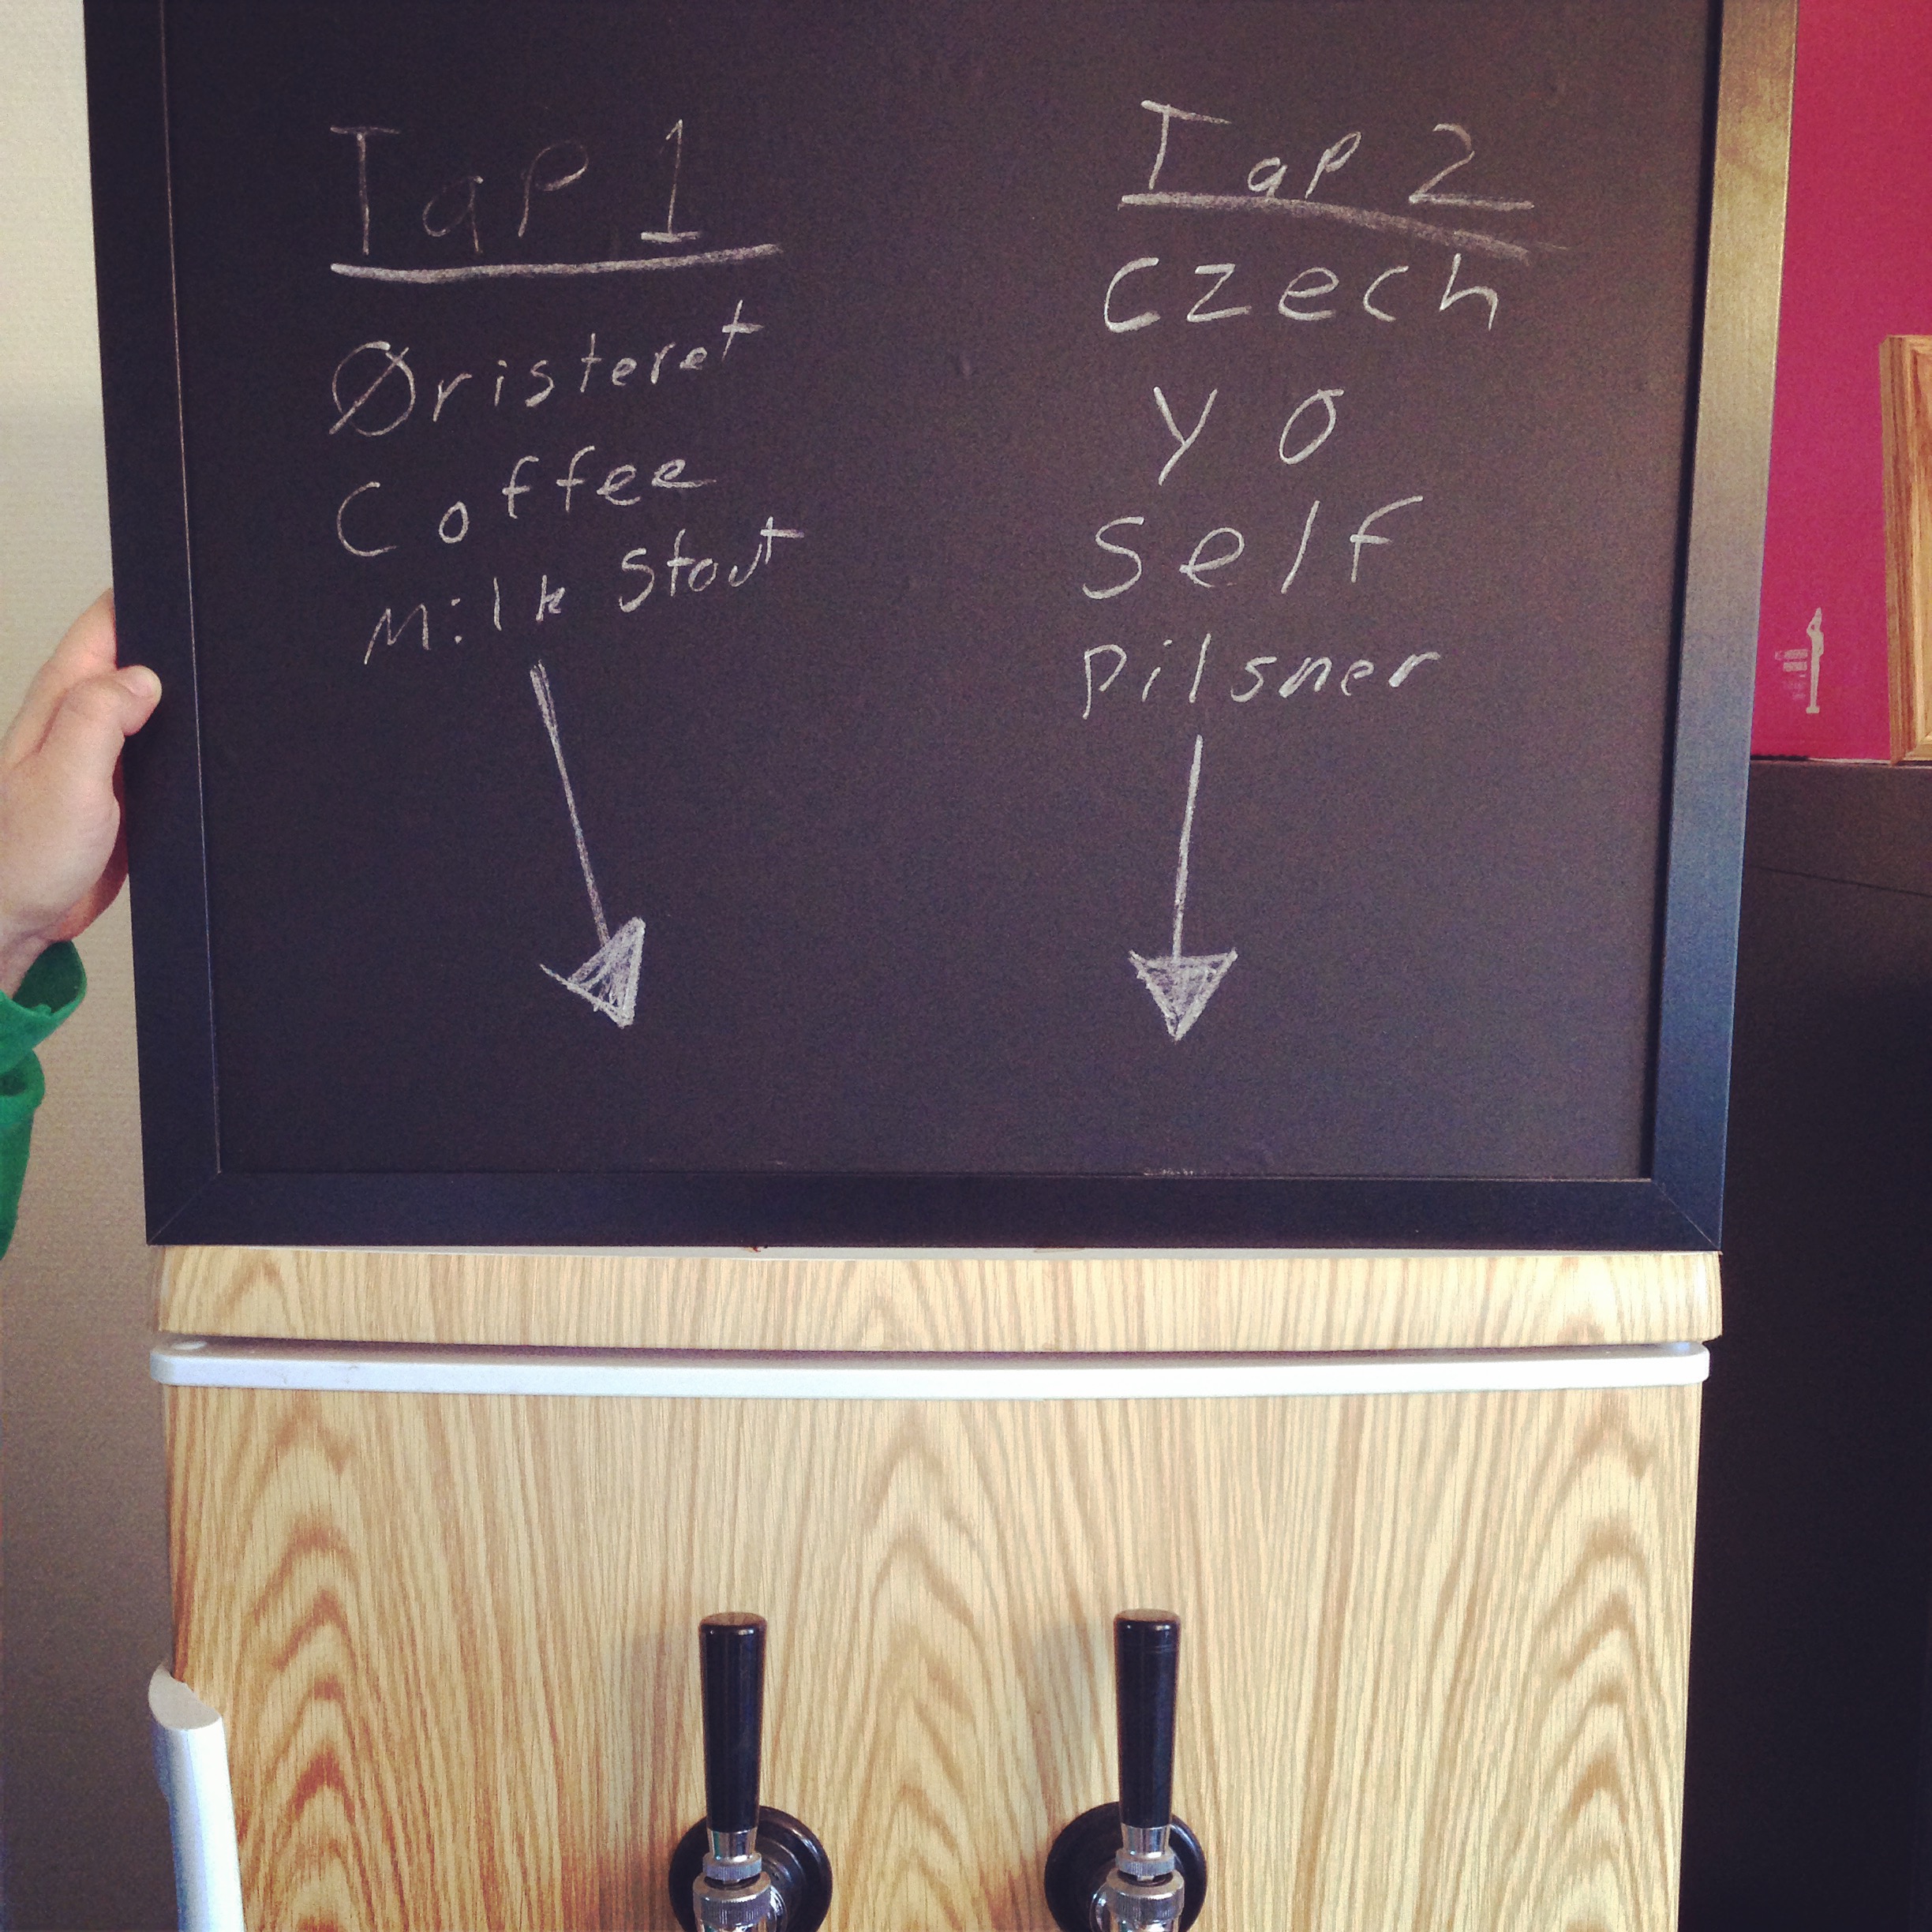 Tap 1
Øristeret
Coffee
Milk Stout
Tap 2
Czech
yo
self
Pilsner